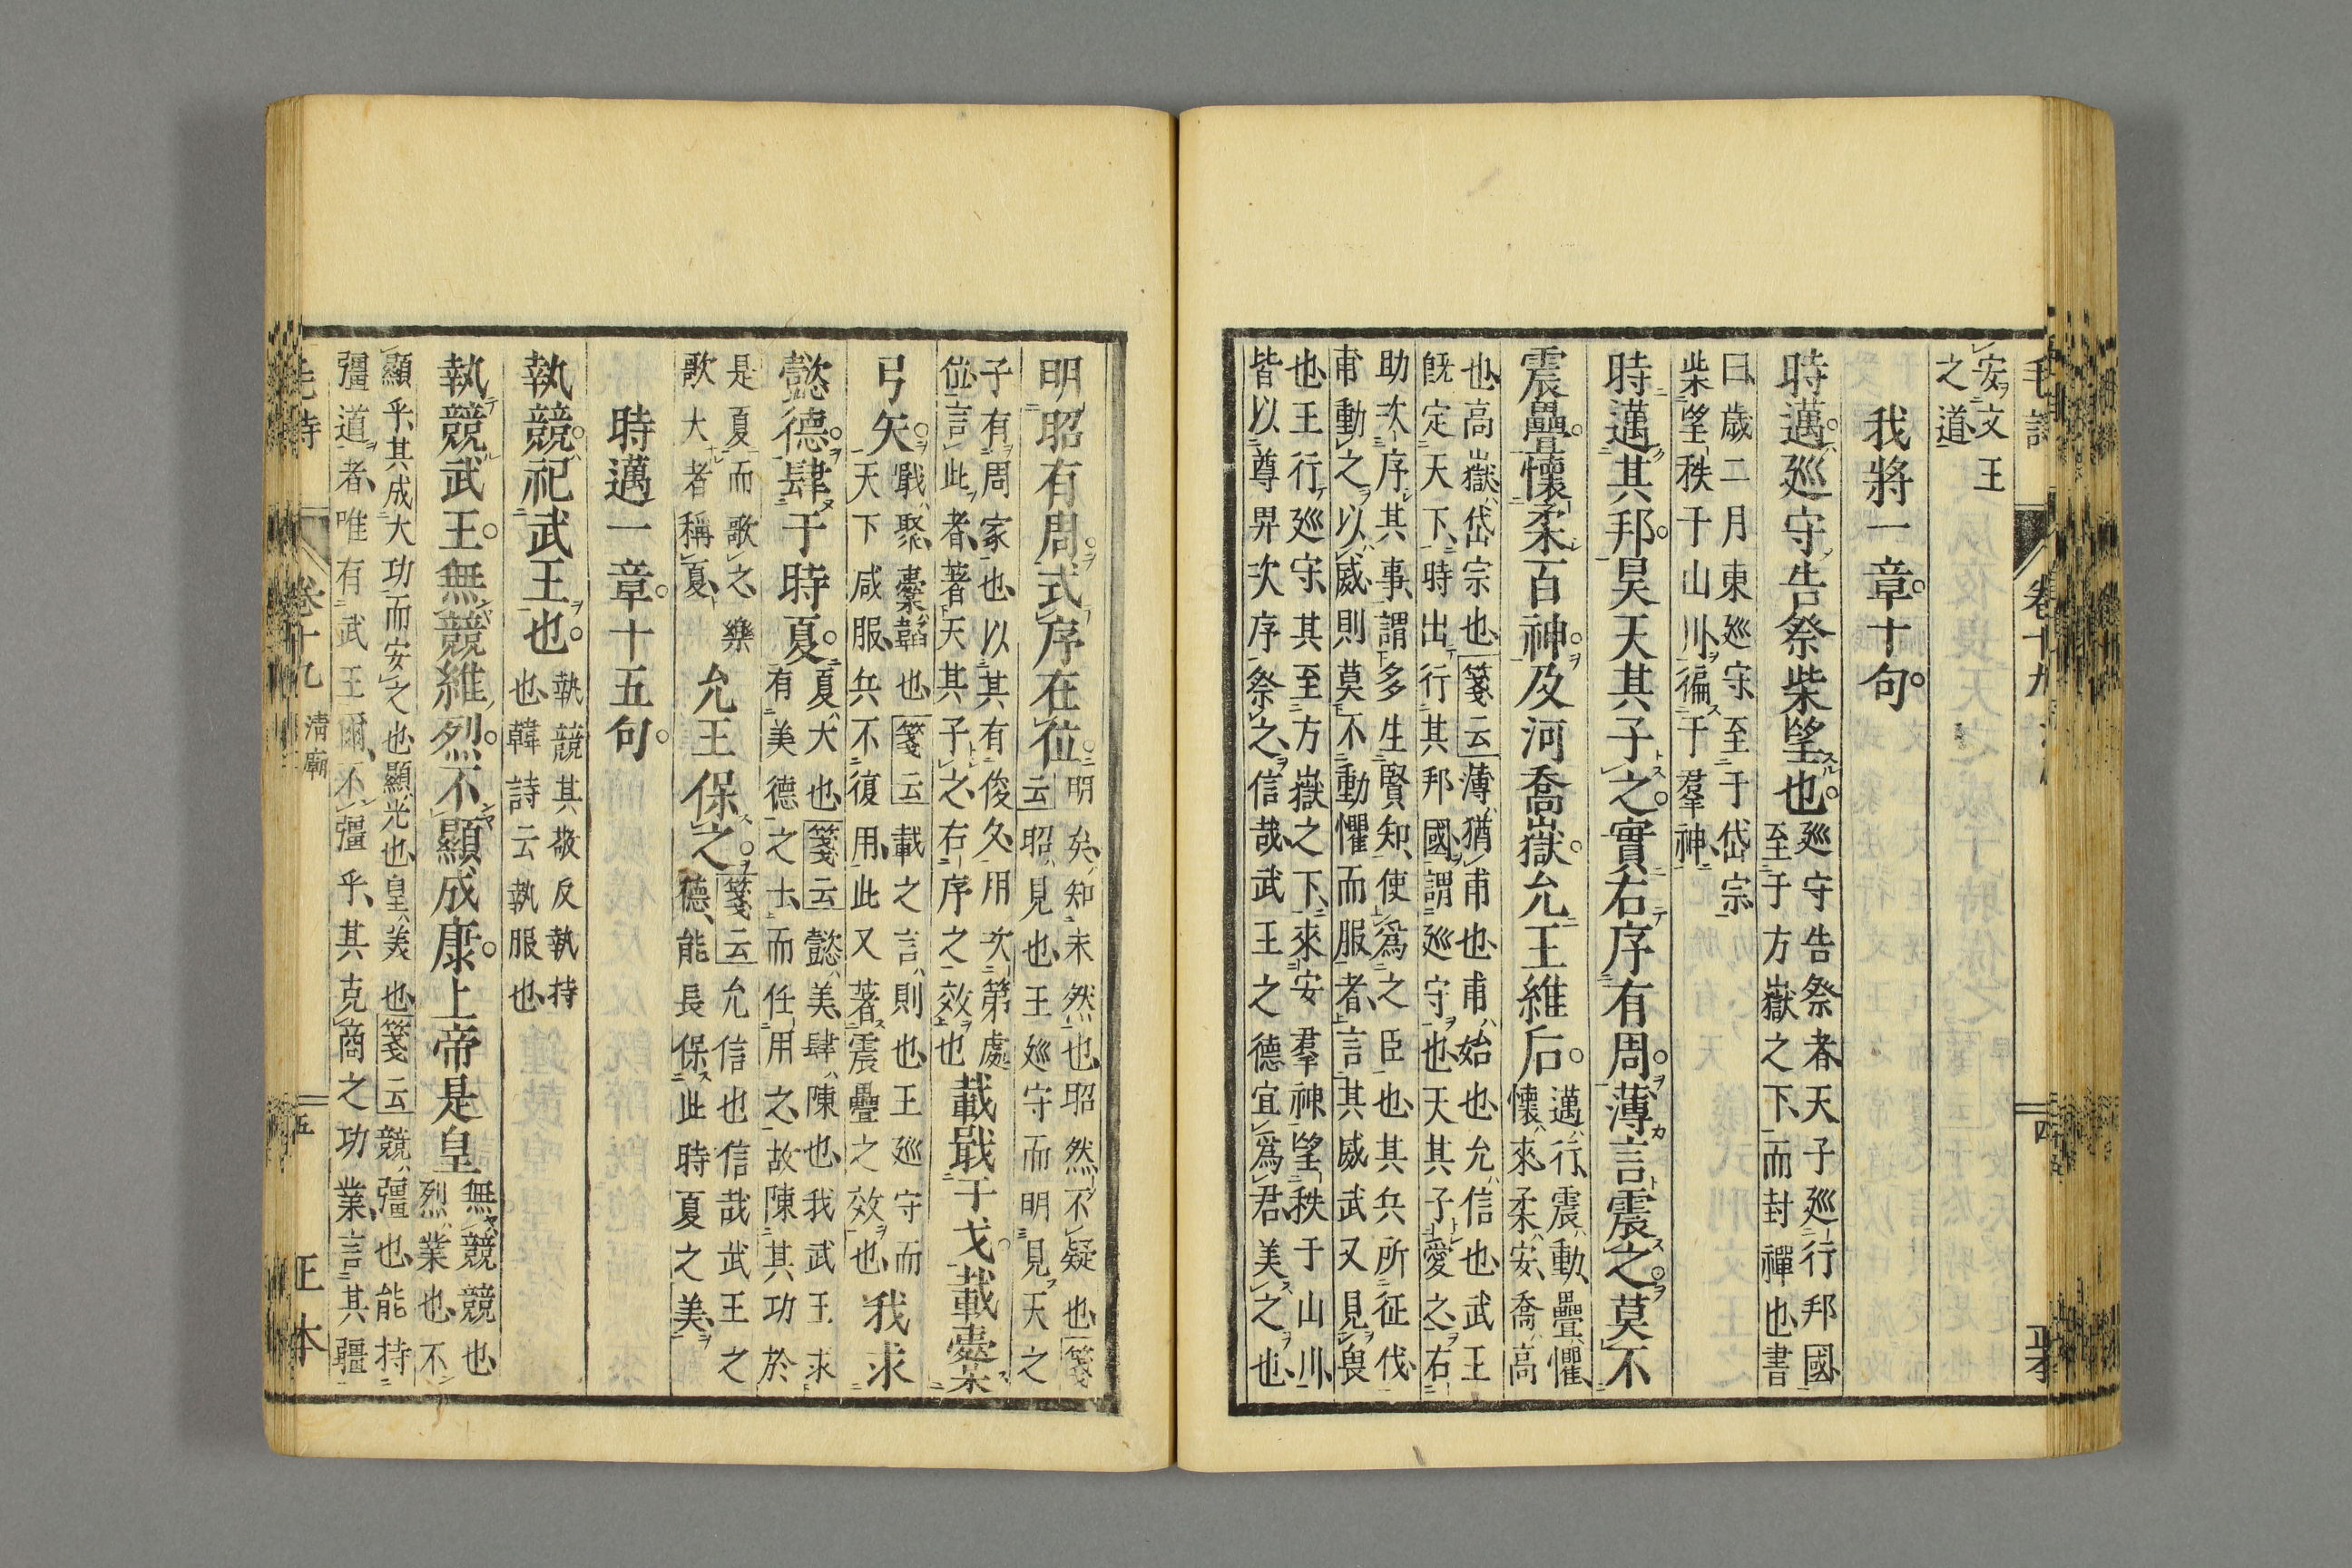 毛詩 卷十九 四 正本
安文王
之道
我將一章。十句。
時邁。巡守告祭柴望也。
巡守告祭者天子巡行邦國
至于方嶽之下而封禪也書
曰歲二月東巡守至于岱宗
柴望秩于山川徧于羣神
時邁其邦。昊天其子之。實右序有周。薄言震之。莫不
震疊。懷柔百神。及河喬嶽。允王維后。
邁行震動疊懼
懷來柔安喬高
也高嶽岱宗也箋云薄猶甫也甫始也允信也武王
既定天下時出行其邦國謂巡守也天其子愛之右
助次序其事謂多生賢知使爲之臣也其兵所征伐
甫動之以威則莫不動懼而服者言其威武又見畏
也王行巡守其至方嶽之下來安羣神望秩于山川
皆以尊畀次序祭之信哉武王之德宜爲君美之也
明昭有周。式序在位。
明矣知未然也昭然不疑也箋
云昭見也王巡守而明見天之
子有周家也以其有俊乂用次第處
位言此者著天其子之右序之效也
載戢干戈。載櫜
弓矢。
戢聚櫜韜也箋云載之言則也王巡守而
天下咸服兵不復用此又著震疊之效也
我求
懿德。肆于時夏。
夏大也箋云懿美肆陳也我武王求
有美德之士而任用之故陳其功於
是夏而歌之樂
歌大者稱夏
允王保之。
箋云允信也信哉武王之
德能長保此時夏之美
時邁一章。十五句。
執競。祀武王也。
執競其敬反執持
也韓詩云執服也
執競武王。無競維烈。不顯成康。上帝是皇
無競競也
烈業也不
顯乎其成大功而安之也顯光也皇美也箋云競彊也能持
彊道者唯有武王爾不彊乎其克商之功業言其彊
毛詩 卷十九 清廟 五 正本